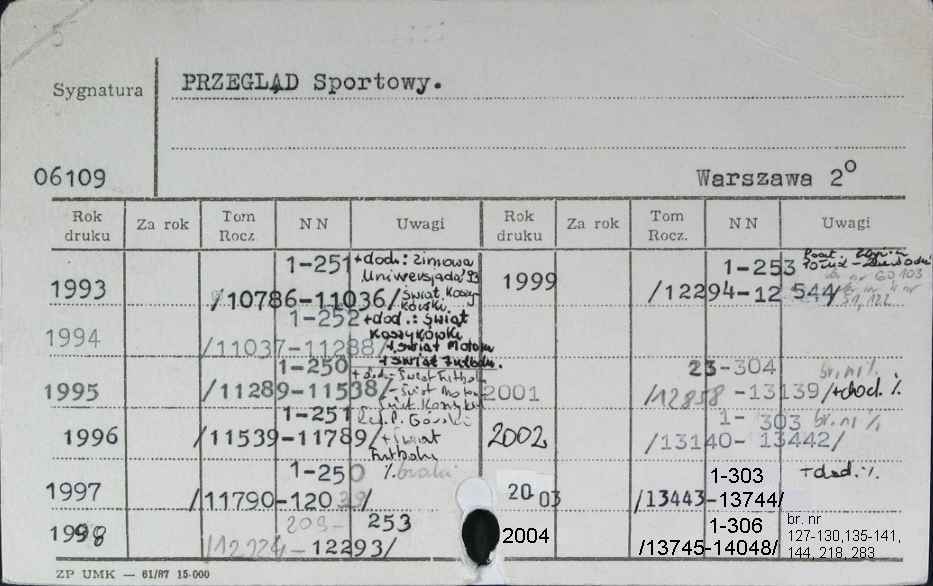 Sygnatura
PRZEGLĄD Sportowy.
06109
Warszawa 2°
Rok druku Za rok Tom Rocz N N Uwagi Rok druku Za rok Tom Rocz. N N Uwagi
1993 1-251 /10786-11036/ +dod.: Zimowa Uniwersjada'93 /świat Koszykówki
1999 1-253 /12294-12 544/
1994 1-252 /11037-11288/ +dod.: świat Koszykówki + świat Motorów + świat Futbolu.
1995 1-250 /11289-11538/ świat Futbolu
2001 23-304 /12858-13139/ br. nr % +dod. %
1996 1-251 /11539-11789/ + świat Futbolu
2002 1-303 /13140-13442/ br. nr %
1997 1-250 /11790-12039/ % braki
2003 1-303 /13443-13744/ +dod. %
1998 209-253 -12293/
2004 1-306 /13745-14048/ br. nr
127-130,135-141,
144, 218, 283
ZP UMK — 61/87 15·000